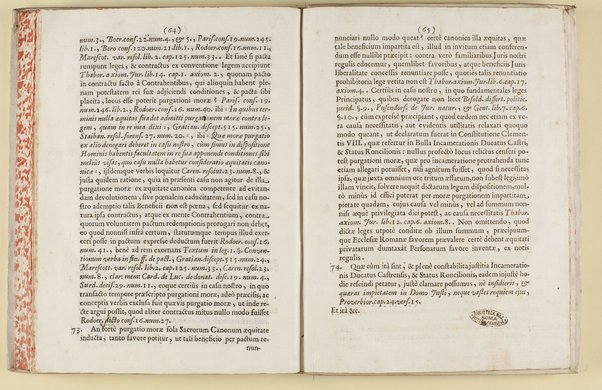 (64)
num.3., Boer.conf.22.num.4., & 5., Paris.conf.19.num.245.
lib.1., Bero conf.120.num.21.lib.1., Rodoer.conf.16.num.11.,
Marescot. var. resol. lib. 2. cap.125. num.33.. Et sanè si pacta
rumpunt leges, & contractus ex conventione legem accipiunt
Thabor. axiom. Jur. lib.14. cap.1. axiom. 2., quonam pacto
in contractu facto à Contrahentibus, qui alioquin habent ple-
nam potestatem rei suæ adjiciendi conditiones, & pacta sibi
placita, locus esse poterit purgationi moræ? Paris. conf. 19.
num.246. lib.1., Rodoer. conf.16. num.40. ibi: In quibus ter-
minis nulla æquitas suadet admitti purgationem moræ contra le-
gem, quam in re mea dixi:, Gratian. discept. 515. num.25.,
Staiban. resol. forens. 27. num. 20., ibi: Quæ mora purgatio
ex alio denegari deberet in casu nostro, cùm simus in dispositione
Hominis habentis facultatem in re sua apponendi conditiones sibi
molles visas, quo casu nulla habetur consideratio æquitatis cano-
nicæ:, iisdemque verbis loquitur Caren. resolut.23. num.8., &
justa quidem ratione, quia in præsenti casu non agitur de illa
purgatione moræ ex æquitate canonica competente ad evitan-
dam devolutionem, sivè pœnalem caducitatem, sed in casu no-
stro ademptio talis Beneficii non est pœna, sed sequitur ex na-
tura ipsa contractus, atque ex mente Contrahentium, contra
quorum voluntatem pactum redemptionis prorogari non debet,
eo quod nonnisi infrà certum, statutumque tempus illud exer-
ceri posse in pactum expresse deductum fuerit Rodoer. conf.16.
num. 41., benè ad rem exornans Textum in leg. 1. §. Conven-
tionum verba in fin. ff. de pact., Gratian. discept. 515. num.24.,
Marescott. var. resol. lib. 2. cap. 125. num. 33., Caren. resol.23.
num. 8., clar. ment Card. de Luc. de donat. disc. 19. num. 4.,
Surd. decis.29. num. 11., eoque certiùs in casu nostro, in quo
transacto tempore præscripto purgationi moræ, adeò præcisis, ac
conceptis verbis exclusa fuit quævis purgatio moræ, ut inde re-
ctè argui posse, quod aliter contractus initus nullo modo fuisset
Rodoer. dicto conf.16. num.27.
73. An fortè purgatio moræ sola Sacrorum Canonum æquitate
inducta, tanto favore potitur, ut tali beneficio per pactum re-
nun-
(65)
nunciari nullo modo queat? certè canonica illa æquitas, quæ
tale beneficium impartita est, illud in invitum etiam conferen-
dum esse nullibi præcipit: contra verò familiaribus Juris nostri
regulis edocemur, quemlibet favoribus, atque beneficiis Juris
liberalitate concessis renuntiare posse, quoties talis renuntiatio
prohibitoria lege vetita non est Thabor. axiom. Jur. lib.6. cap.17.
axiom.4.. Certiùs in casu nostro, in quo fundamentales leges
Principatus, quibus derogare non licet Besold. dissert. politic.
jurid. §.9., Pufendorf. de Jur. natur., & Gent. lib.7. cap.6.
§.10., cùm expresse præcipiant, quod eædem nec etiam ex ve-
ra causa necessitatis, aut evidentis utilitatis relaxari quoquo
modo queant, ut declaratum fuerat in Constitutione Clemen-
tis VIII, quæ refertur in Bulla Incamerationis Ducatus Castri,
& Status Roncilionis: nullus profectò locus relictus censeri po-
test purgationi moræ, quæ pro incameratione protrahenda tunc
etiam allegari potuisset, nisi agnitum fuisset, quod si necessitas
ipsa, quæ juxta omnium ore tritum assatum, non subest legi, imò
illam vincit, solvere nequit dictarum legum dispositionem, mul-
tò minùs id effici poterat per moræ purgationem impartitam,
pietate quadam, cujus causa vel minus, vel ad summum non-
nisi æquè privilegiata dici potest, ac causa necessitatis Thabor.
axiom. Jur. lib.12. cap.6. axiom. 8.. Non omittendo, quod
dictæ leges utpotè conditæ ob illum summum, præcipuum-
que Ecclesiæ Romanæ favorem prævalere certè debent æquitati
privatarum dumtaxat Personarum favore inventæ, ex notis
regulis.
74. Quæ cùm itâ sint, & plenè constabilita justitia Incameratio-
nis Ducatus Castrensis, & Status Roncilionis, eadem injustè ho-
die rescindi petatur, justè clamare possumus, nè insidieris, &
quæras impietatem in Domo Justi, neque vastes requiem ejus,
Proverbior. cap. 24. vers. 15.
Et itâ &c.
ROMA